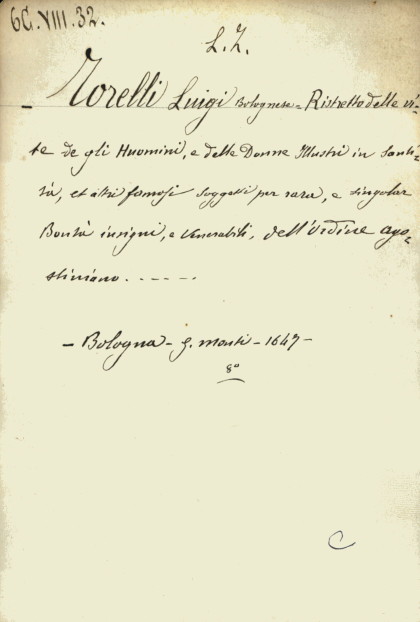 6C.VIII.32.
L.Z.
Torelli Luigi Bolognese = Ristretto delle vi-
te de gli Huomini, e delle Donne Illustri in Santi-
tà, et altri famosi soggetti per rara, e singolar
Bontà insigni, e Venerabili, dell'Ordine ago-
stiniano. - - - - -
- Bologna - G. Monti - 1647 -
8°
C